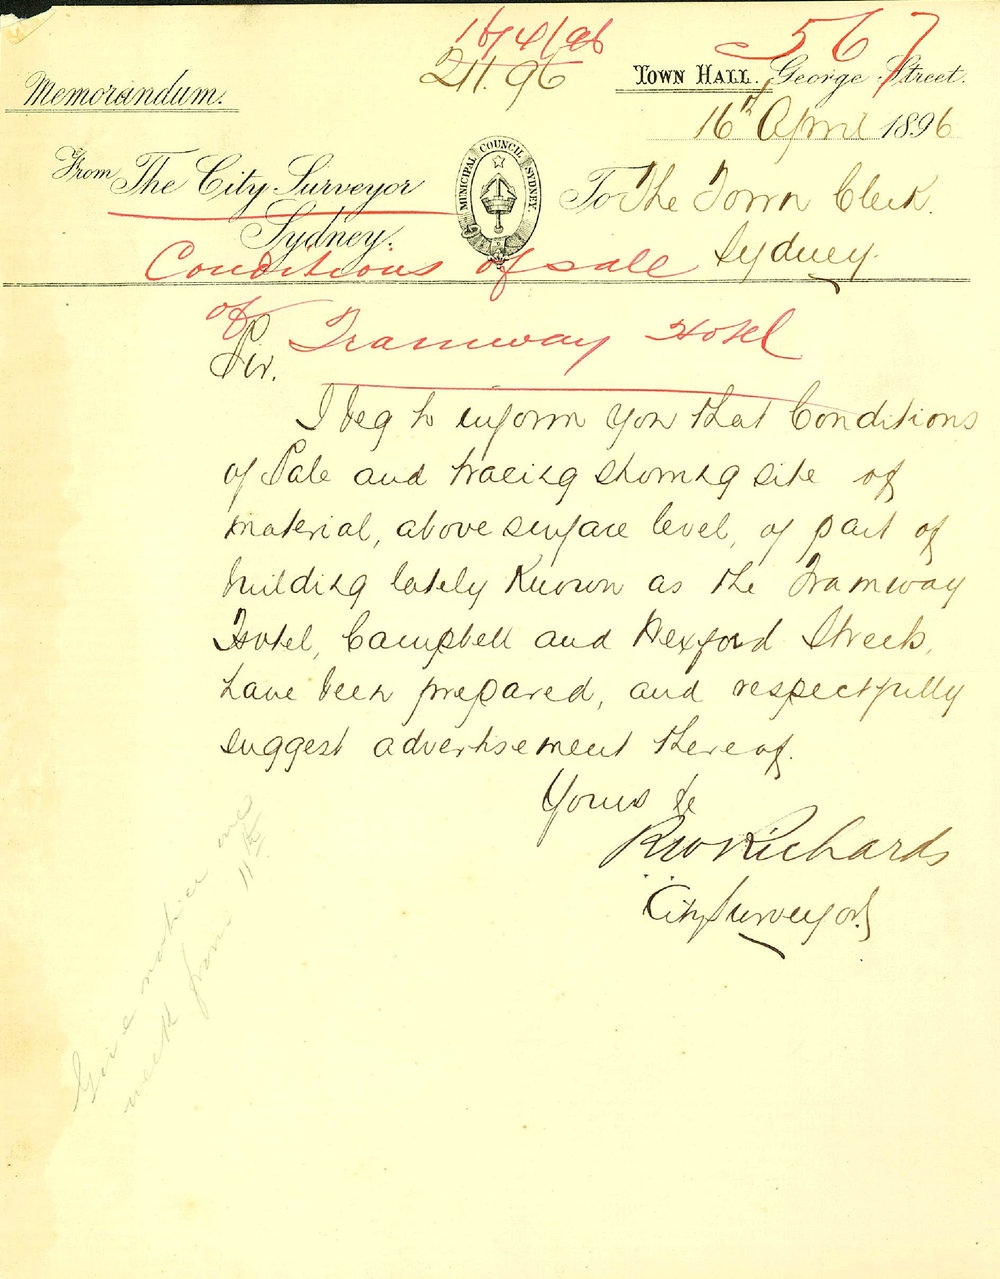 16/4/96
567
211.96
TOWN HALL. George Street.
Memorandum.
16th April 1896
From The City Surveyor
Sydney.
MUNICIPAL COUNCIL SYDNEY.
To The Town Clerk.
Sydney.
Conditions of sale
of Tramway Hotel
Sir.
I beg to inform you that Conditions
of Sale and tracing showing site of
material, above surface level, of part of
building lately known as the Tramway
Hotel, Campbell and Wexford Streets,
have been prepared, and respectfully
suggest advertisement thereof.
Yours &c
RW Richards
City Surveyor
Give notice
week from 11th